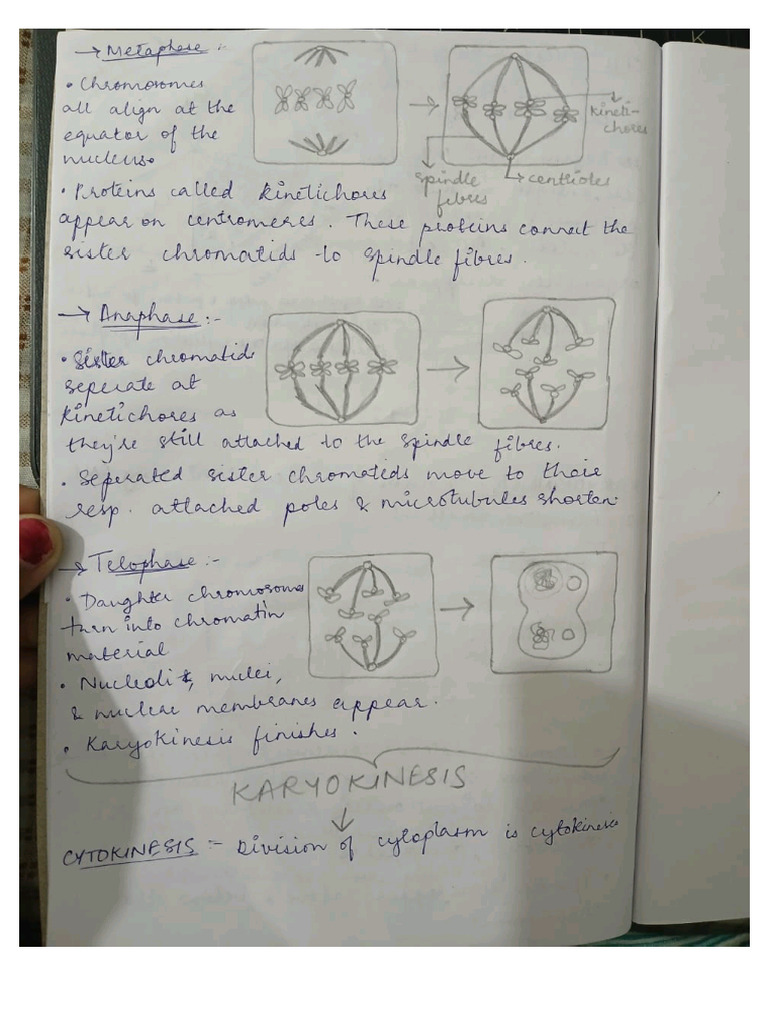 → Metaphase :-
• Chromosomes
all align at the
equator of the
nucleus.
kineti-
chores
spindle
fibres
centrioles
• Proteins called kinetichores
appear on centromeres. These proteins connect the
sister chromatids to spindle fibres.
→ Anaphase :-
• Sister chromatids
seperate at
kinetichores as
they're still attached to the spindle fibres.
• Seperated sister chromatids move to their
resp. attached poles & microtubules shorten.
→ Telophase :-
• Daughter chromosomes
turn into chromatin
material
• Nucleoli, nuclei,
& nuclear membranes appear.
• Karyokinesis finishes.
KARYOKINESIS
↓
CYTOKINESIS :- Division of cytoplasm is cytokinesis